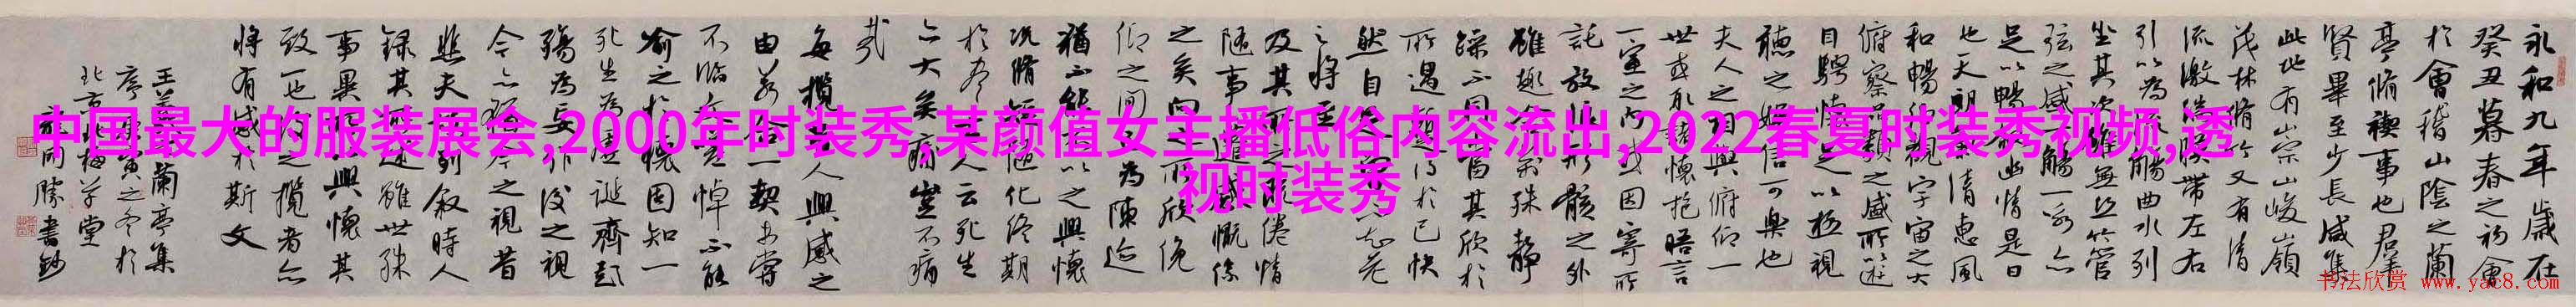 中国最大的服装展会,2000年时装秀,某颜值女主播低俗内容流出,2022春夏时装秀视频,透
视时装秀
永和九年歲在
癸丑暮春之初會
於會稽山陰之蘭
亭脩禊事也群
賢畢至少長咸集
此地有崇山峻嶺
茂林脩竹又有清
流激湍映帶左右
引以為流觴曲水列
坐其次雖無絲竹管
弦之盛一觴一詠亦
足以暢敘幽情是日
也天朗氣清惠風
和暢仰觀宇宙之大
俯察品類之盛所以遊
目騁懷足以極視
聽之娛信可樂也
夫人之相與俯仰一
世或取諸懷抱晤言
一室之內或因寄所
託放浪形骸之外
雖趣舍萬殊靜
躁不同當其欣於
所遇暫得於己快
然自足不知老
之將至
及其所之既倦情
隨事遷感慨係
之矣向之所欣俛
仰之間以為陳迹
猶不能不以之興懷
況脩短隨化終期
於盡古人云死生
亦大矣豈不痛
哉
每攬昔人興感之
由若合一契未嘗
不臨文嗟悼不能
喻之於懷固知一
死生為虛誕齊彭
殤為妄作後之視
今亦猶今之視昔
悲夫故列敘時人
錄其所述雖世殊
事異所以興懷其
致一也後之攬者亦
將有感於斯文
王羲之蘭亭集
序庚寅之冬於
北京梅草堂
同勝書鈔
书法欣赏 www.yac8.com